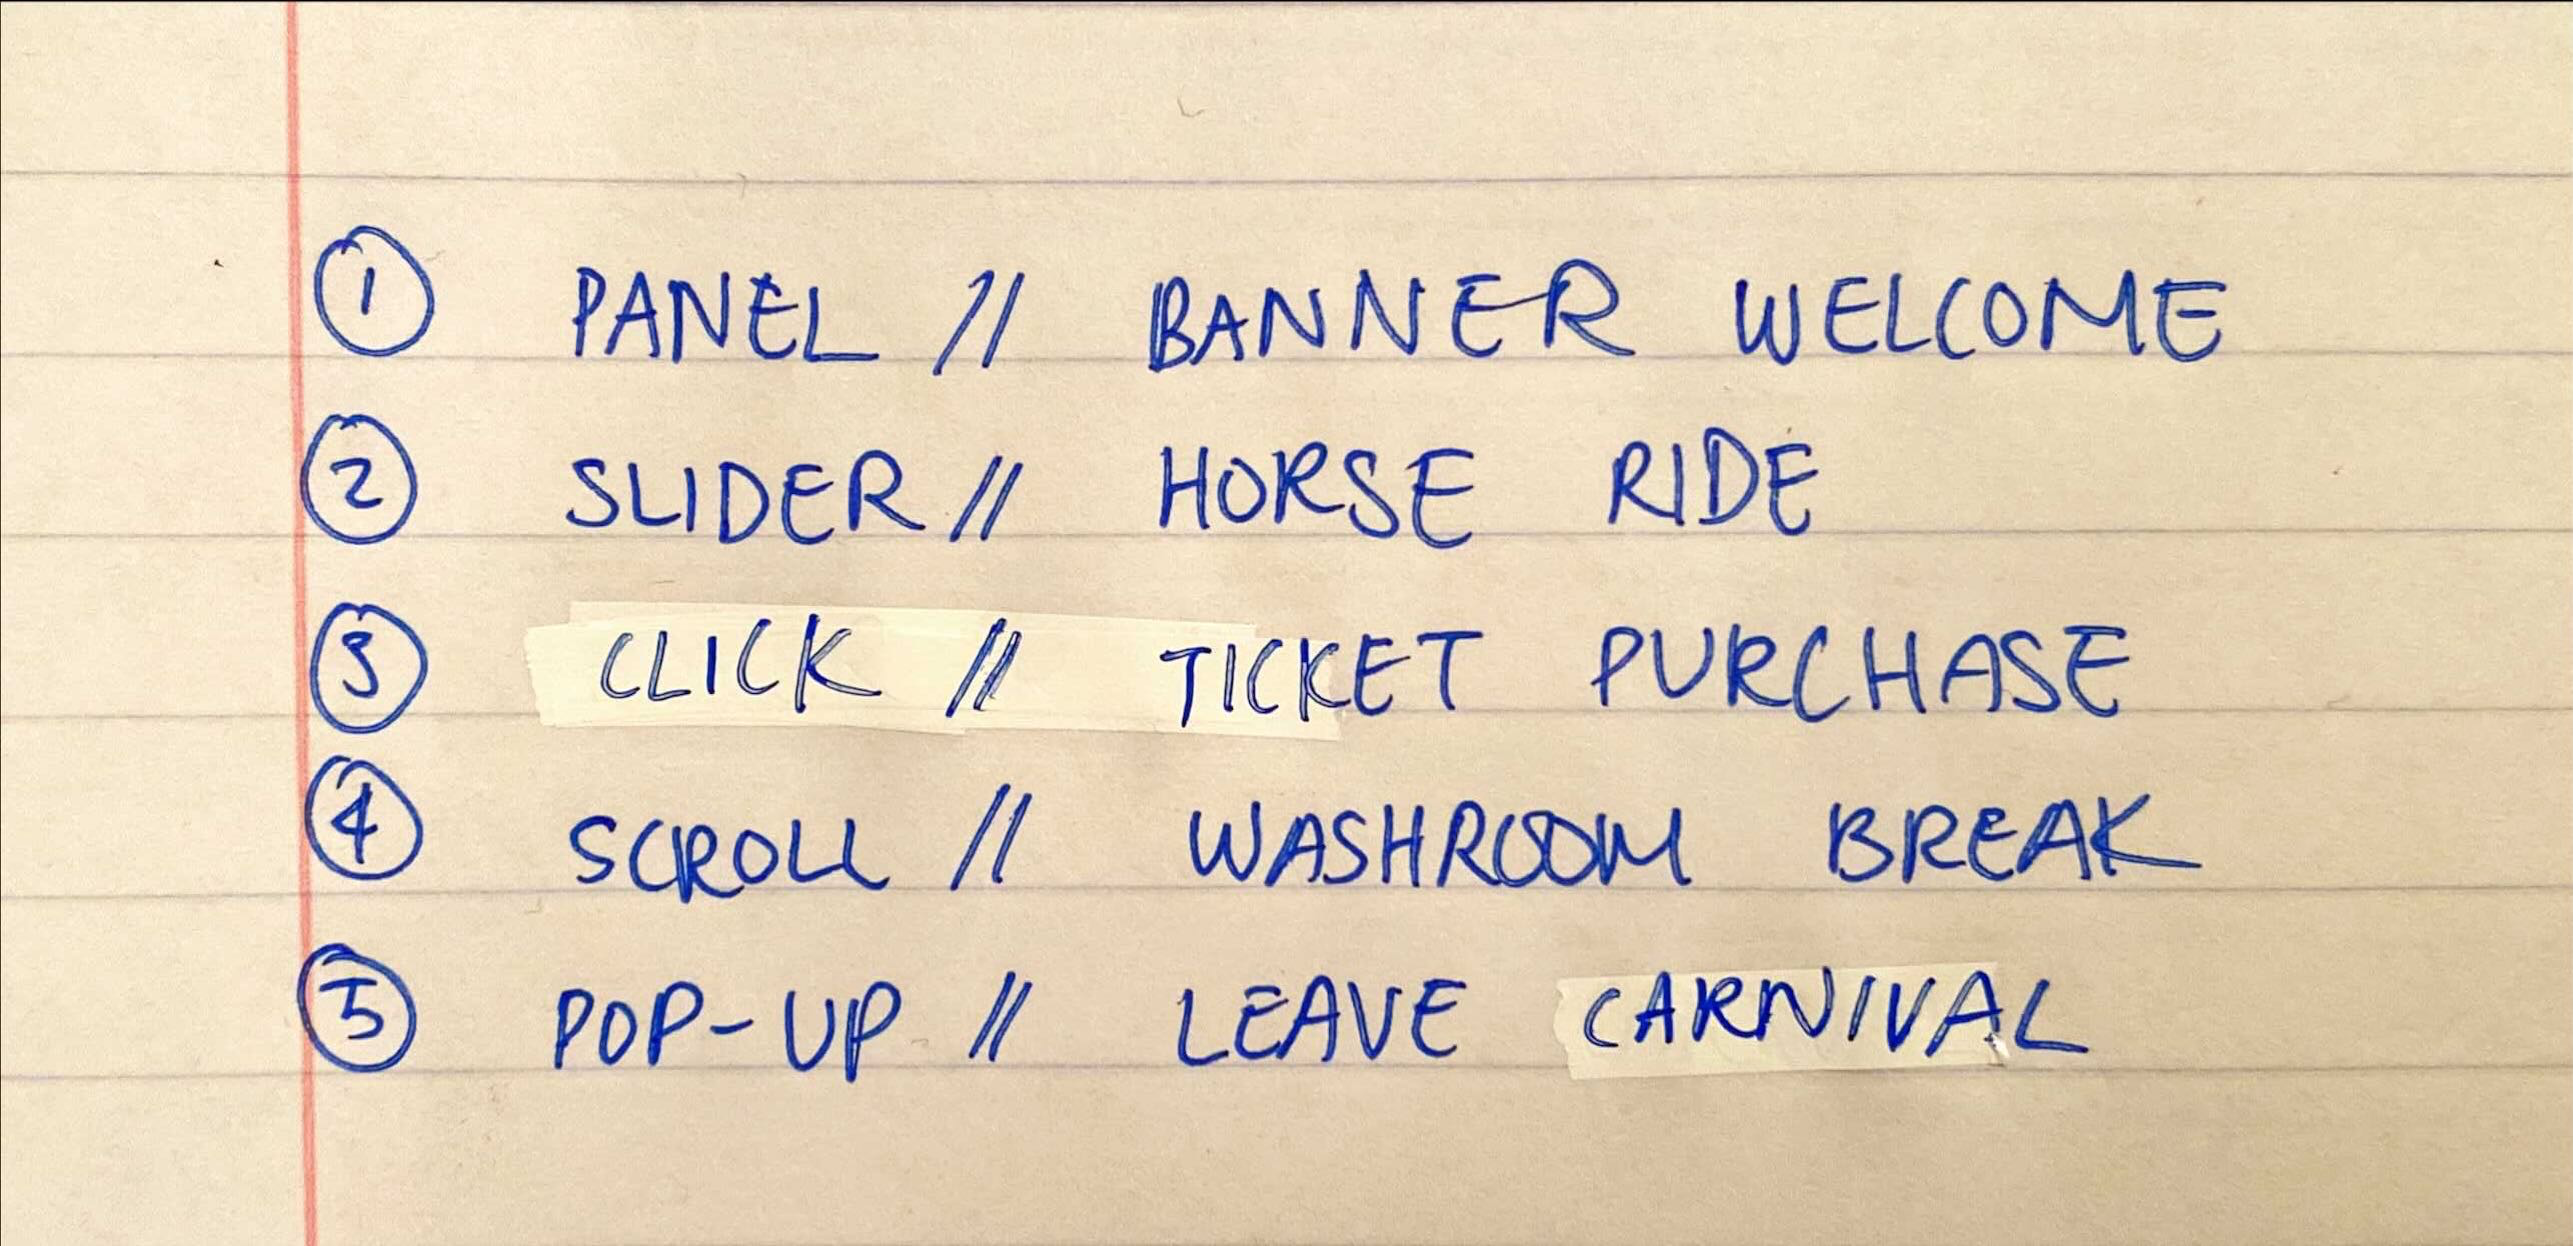 ① PANEL // BANNER WELCOME
② SLIDER // HORSE RIDE
③ CLICK // TICKET PURCHASE
④ SCROLL // WASHROOM BREAK
⑤ POP-UP // LEAVE CARNIVAL